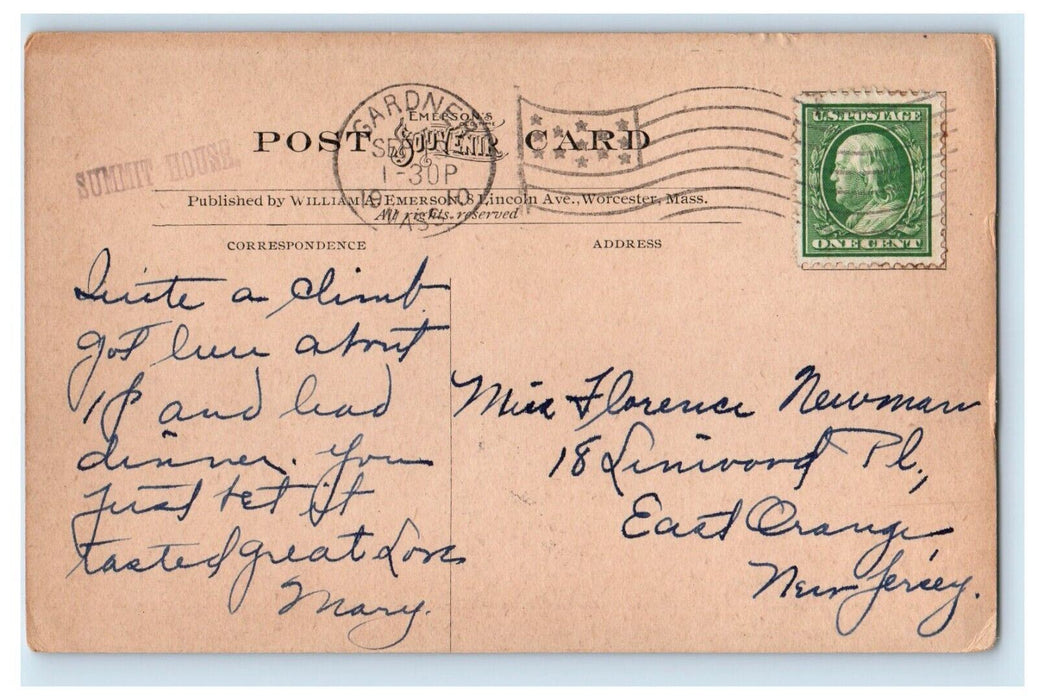 SUMMIT HOUSE.
POST CARD
EMERSON'S
SOUVENIR
GARDNER
SEP
1-30P
1910
MASS.
U.S. POSTAGE
ONE CENT
Published by WILLIAM A. EMERSON, 8 Lincoln Ave., Worcester, Mass.
All rights reserved
CORRESPONDENCE
ADDRESS
Quite a climb
got here about
1 P and had
dinner. You
just bet it
tasted great Love
Mary.
Miss Florence Newman
18 Linwood Pl.,
East Orange
New Jersey.